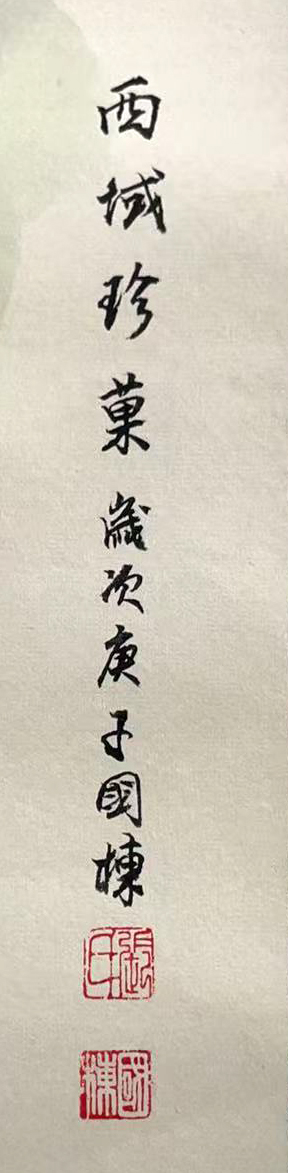 西域珍菓歲次庚子國棟
張氏
國棟